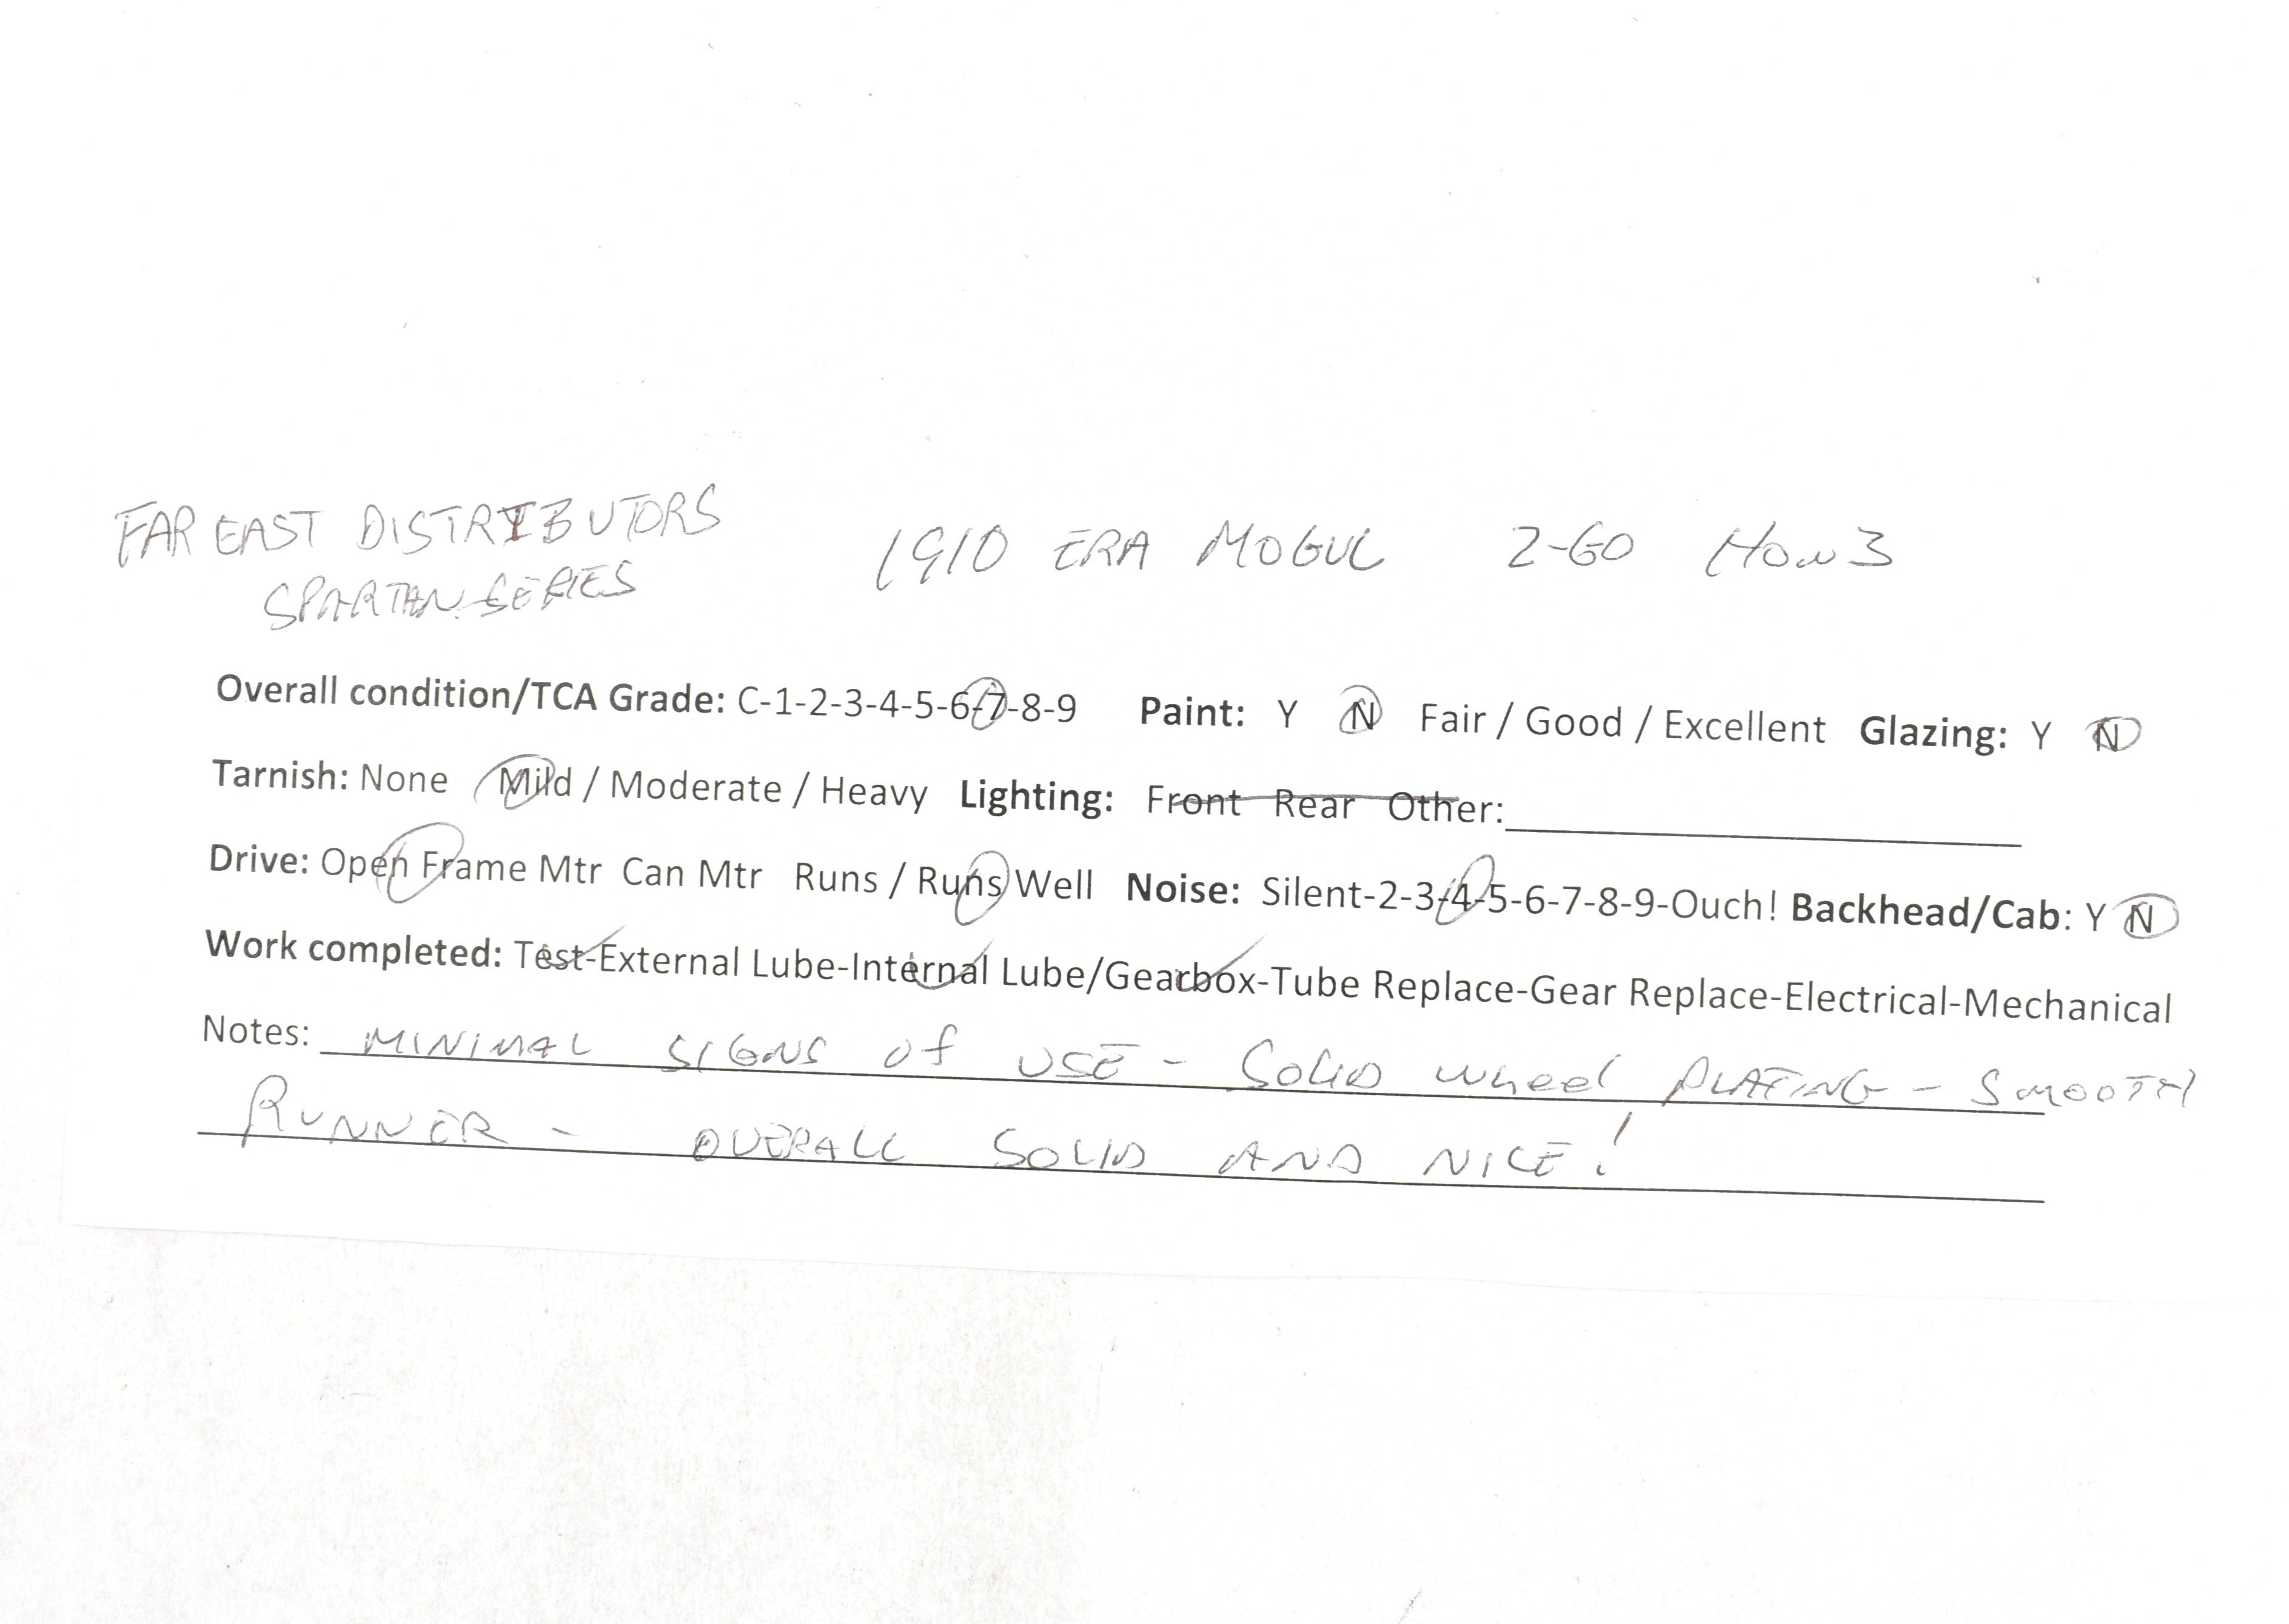 FAR EAST DISTRIBUTORS
SPARTAN SERIES
1910 ERA MOGUL 2-60 HOn3
Overall condition/TCA Grade: C-1-2-3-4-5-6-7-8-9 Paint: Y N Fair / Good / Excellent Glazing: Y N
Tarnish: None Mild / Moderate / Heavy Lighting: Front Rear Other:
Drive: Open Frame Mtr Can Mtr Runs / Runs Well Noise: Silent-2-3-4-5-6-7-8-9-Ouch! Backhead/Cab: Y N
Work completed: Test-External Lube-Internal Lube/Gearbox-Tube Replace-Gear Replace-Electrical-Mechanical
Notes: MINIMAL SIGNS OF USE - SOLID wheel PLATING - SMOOTH
RUNNER - OVERALL SOLID AND NICE!